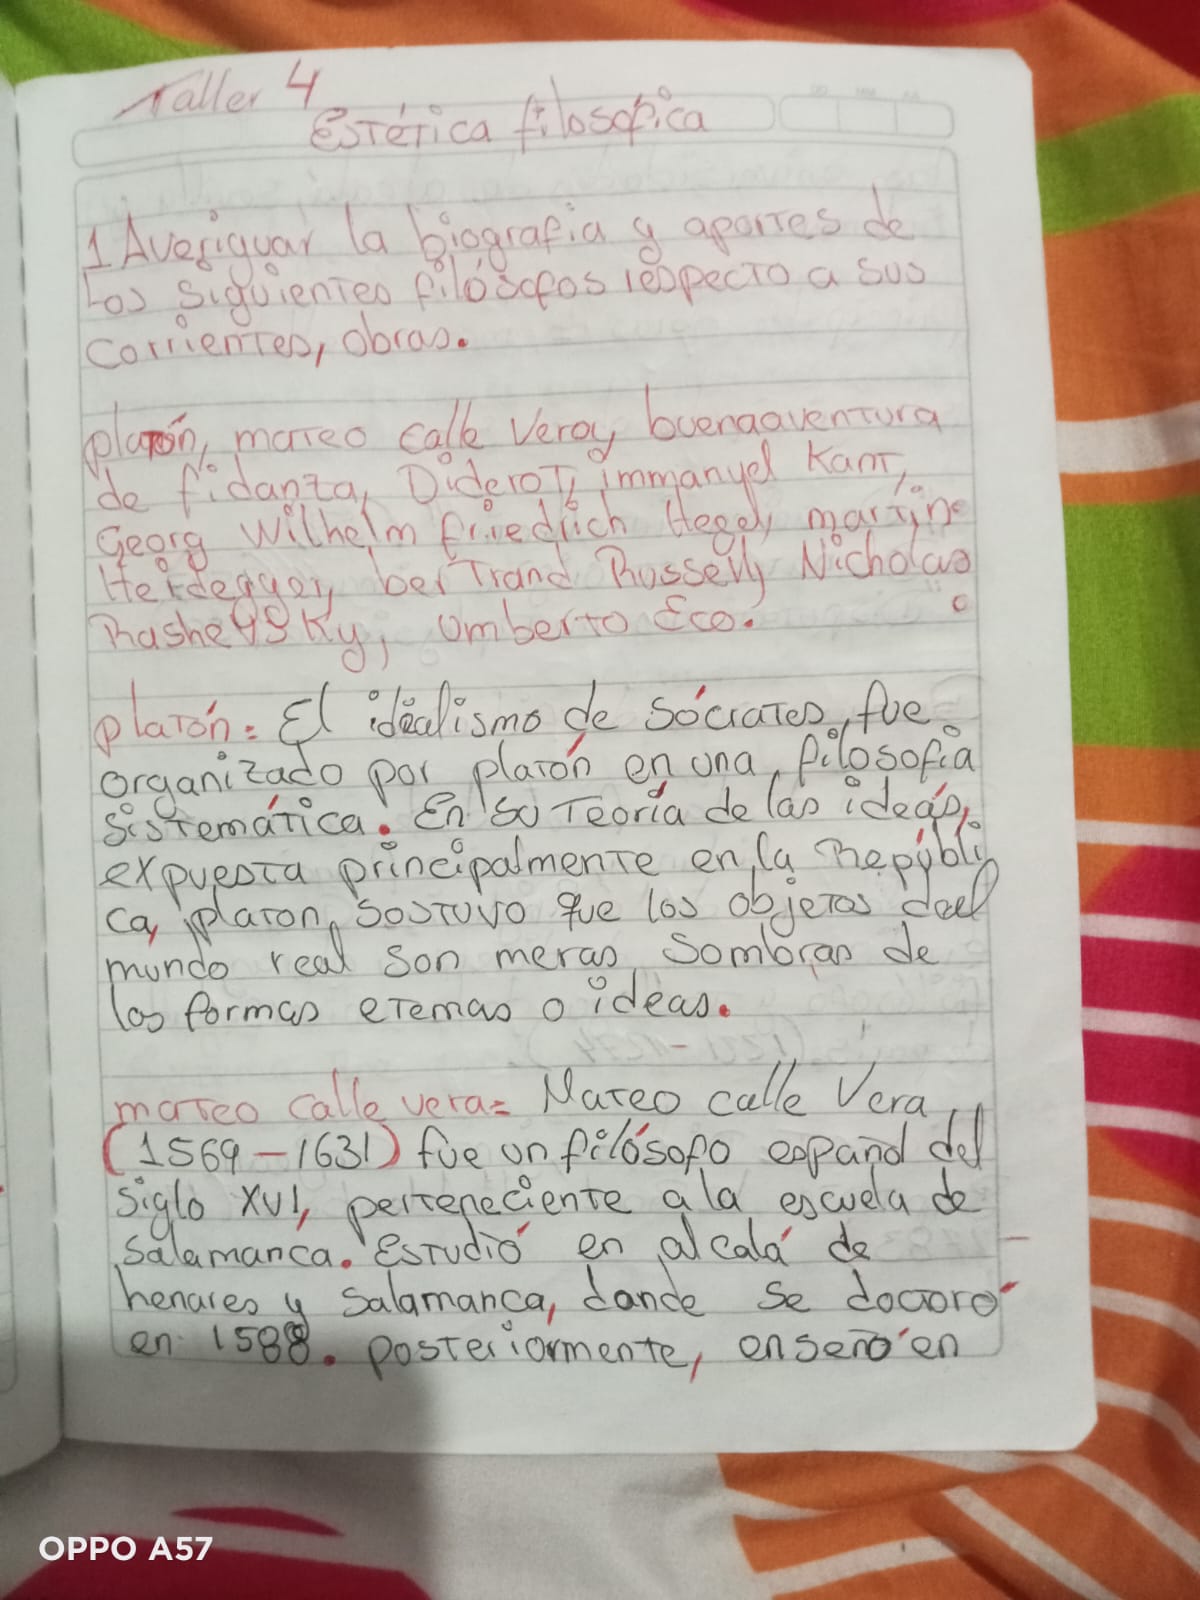 Taller 4
Estética filosófica
1 Averiguar la biografia y aportes de
Los siguientes filósofos respecto a sus
corrientes, obras.
platón, mateo calle Vera, buenaaventura
de fidanza, Diderot, immanyel Kant,
Georg Wilhelm friedrich Hegel, martin
Heidegger, bertrand Russell, Nicholas
Rashevsky, Umberto Eco.
platón: El idealismo de Sócrates, fue
organizado por platón en una filosofia
sistemática. En su Teoría de las ideas,
expuesta principalmente en la Repúbli
ca, platon, sostuvo que los objetos deel
mundo real son meras sombras de
las formas eternas o ideas.
mateo calle vera= Mateo calle Vera
(1569-1631) fue un filósofo español del
siglo XVI, perteneciente a la escuela de
salamanca. Estudió en alcalá de
henares y salamanca, donde se doctoró
en 1588. posteriormente, enseñó en
OPPO A57